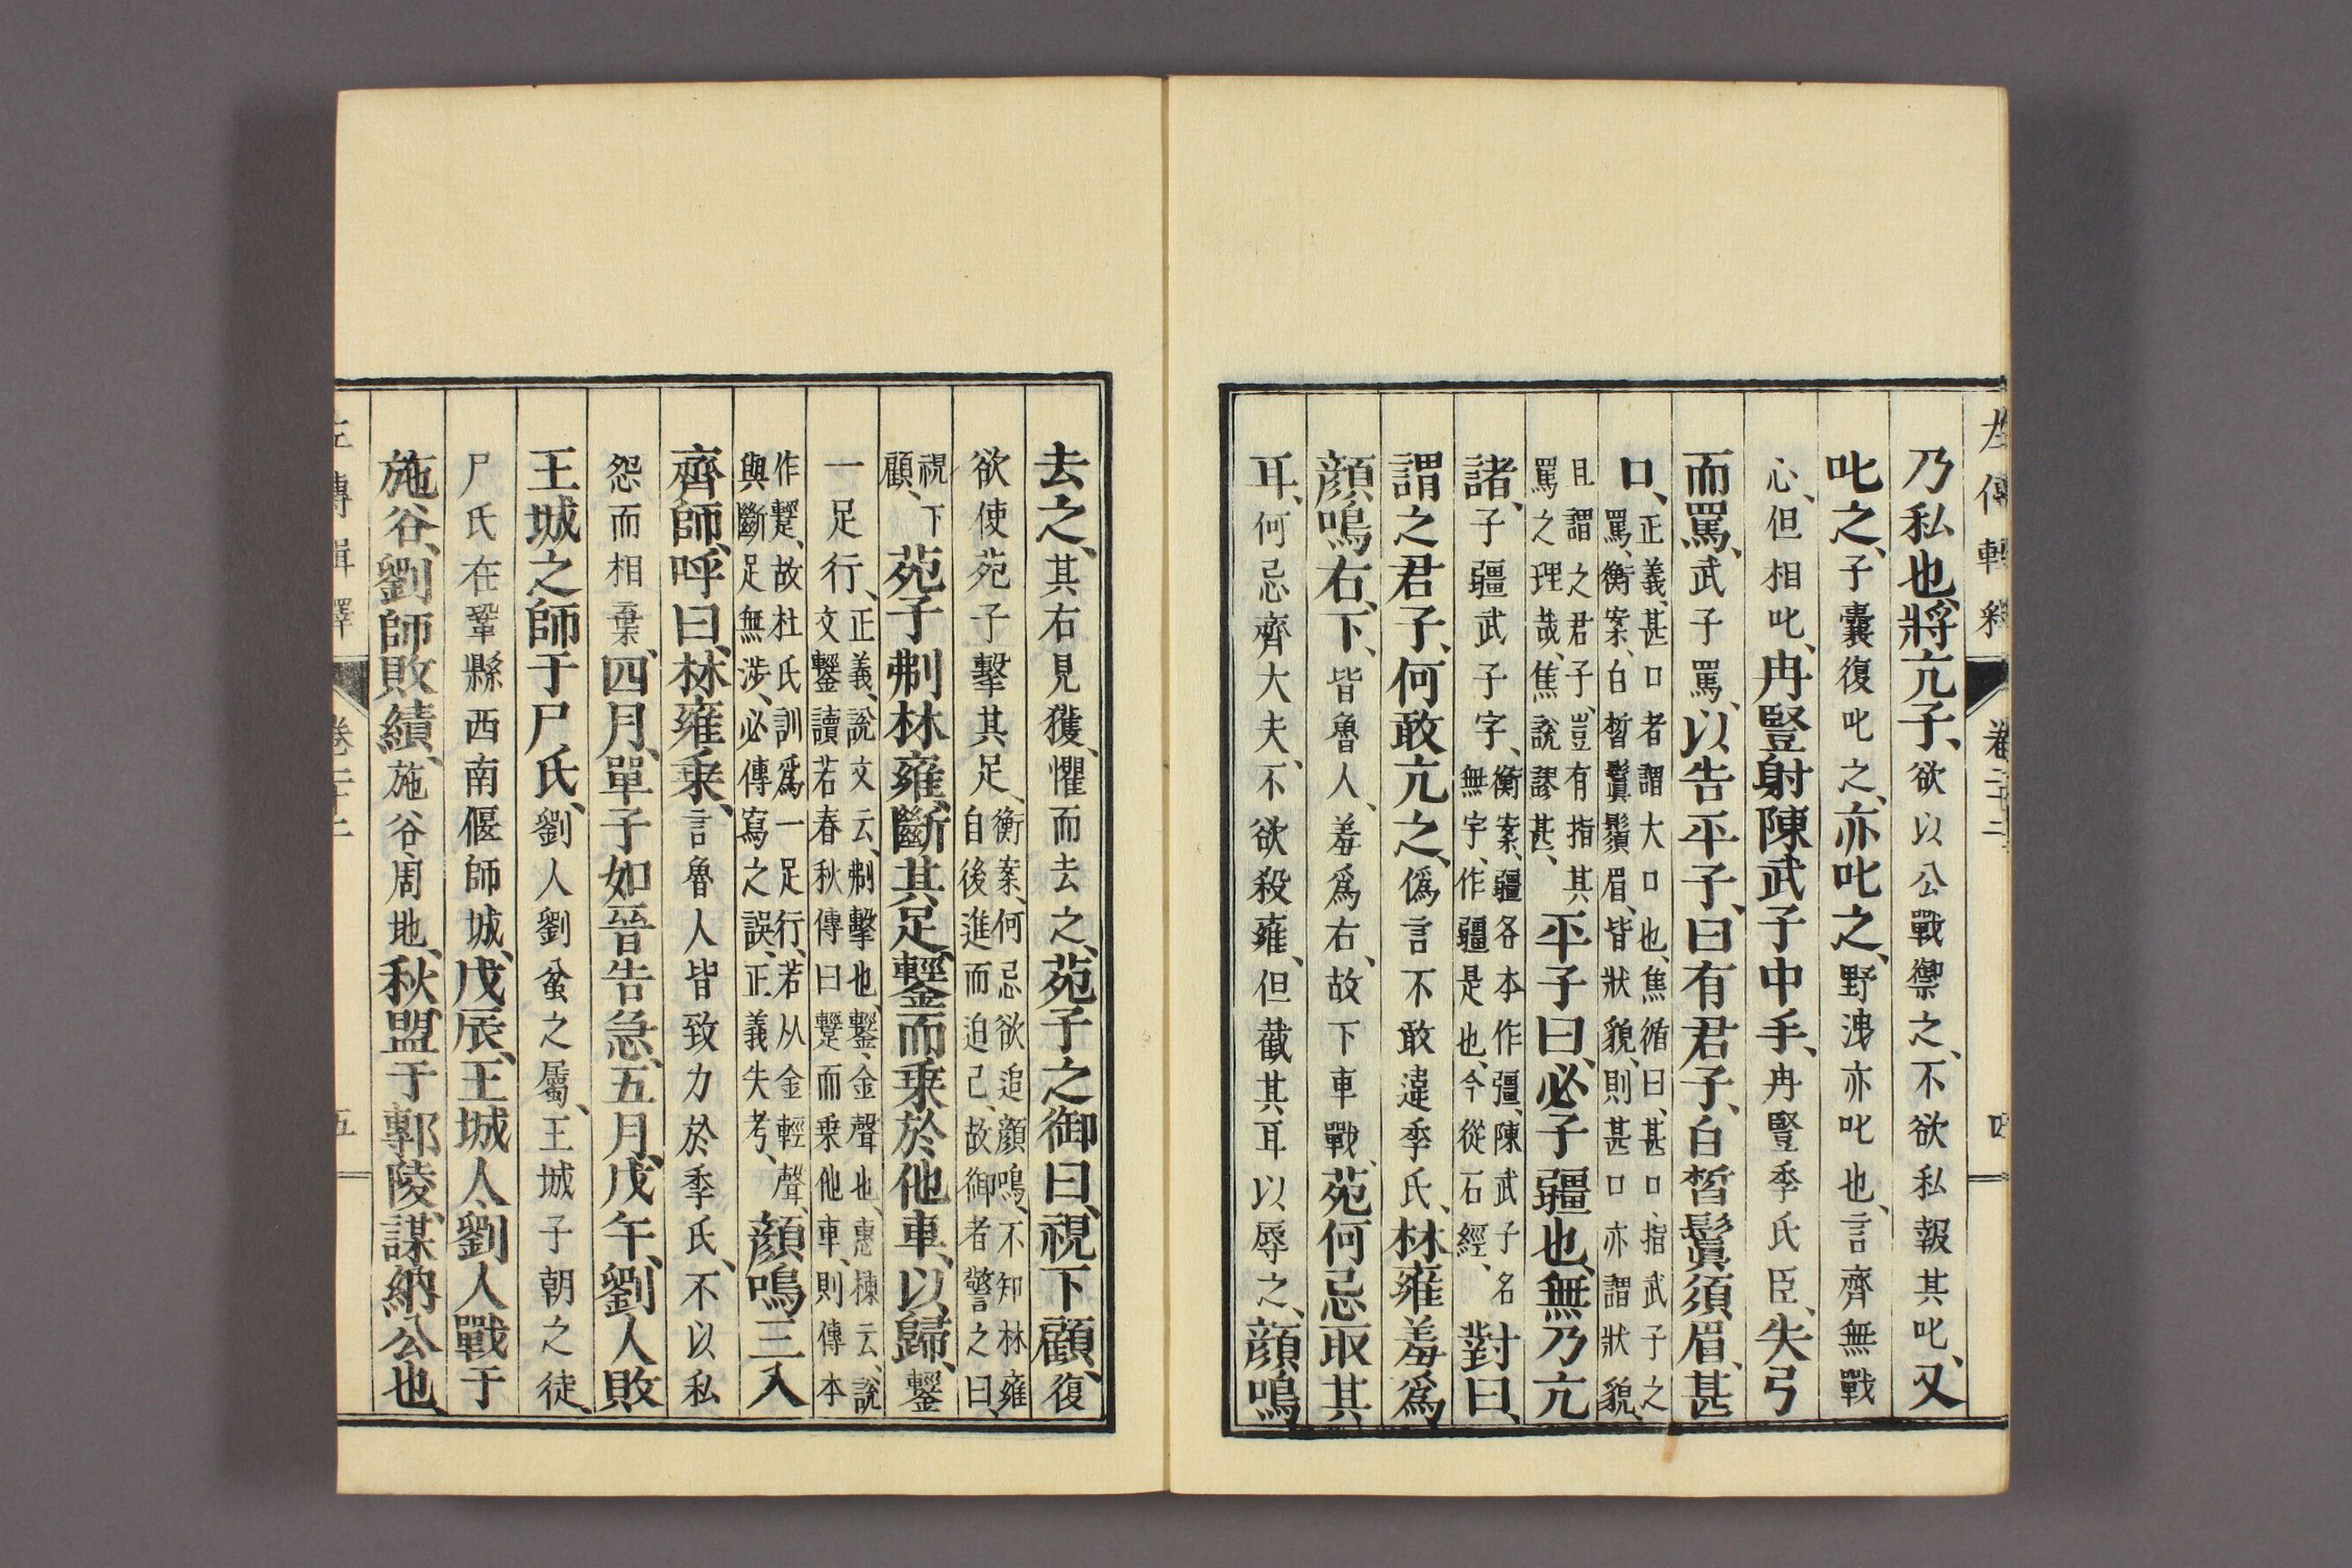 左傳輯釋 卷二十二 四
乃私也、將亢子、欲以公戰禦之、不欲私報其叱、又
叱之、子囊復叱之、亦叱之、野洩亦叱也、言齊無戰
心、但相叱、冉豎射陳武子中手、冉豎季氏臣、失弓
而罵、武子罵、以告平子、曰有君子、白皙鬒須眉、甚
口、正義、甚口者謂大口也、焦循曰、甚口、指武子之
罵、衡案、白皙鬒鬚眉、皆狀貌、則甚口亦謂狀貌、
且謂之君子、豈有指其
罵之理哉、焦說謬甚、平子曰、必子疆也、無乃亢
諸、子疆武子字、衡案、疆各本作彊、陳武子名
無宇、作疆是也、今從石經、對曰、
謂之君子、何敢亢之、僞言不敢違季氏、林雍羞爲
顏鳴右、下、皆魯人、羞爲右、故下車戰、苑何忌取其
耳、何忌齊大夫、不欲殺雍、但截其耳以辱之、顏鳴
去之、其右見獲、懼而去之、苑子之御曰、視下顧、復
欲使苑子擊其足、衡案、何忌欲追顏鳴、不知林雍
自後進而迫己、故御者警之曰、
視下
顧、苑子刜林雍、斷其足、鑋而乘於他車、以歸、鑋
一足行、正義、說文云、刜擊也、鑋、金聲也、惠棟云、說
文鑋讀若春秋傳曰䠠而乘他車、則傳本
作䠠、故杜氏訓爲一足行、若从金輕聲、
與斷足無涉、必傳寫之誤、正義失考、顏鳴三入
齊師、呼曰、林雍乘、言魯人皆致力於季氏、不以私
怨而相棄、四月、單子如晉告急、五月、戊午、劉人敗
王城之師于尸氏、劉人劉蚠之屬、王城子朝之徒、
尸氏在鞏縣西南偃師城、戊辰、王城人、劉人戰于
施谷、劉師敗績、施谷周地、秋盟于鄟陵、謀納公也、
左傳輯釋 卷二十二 五